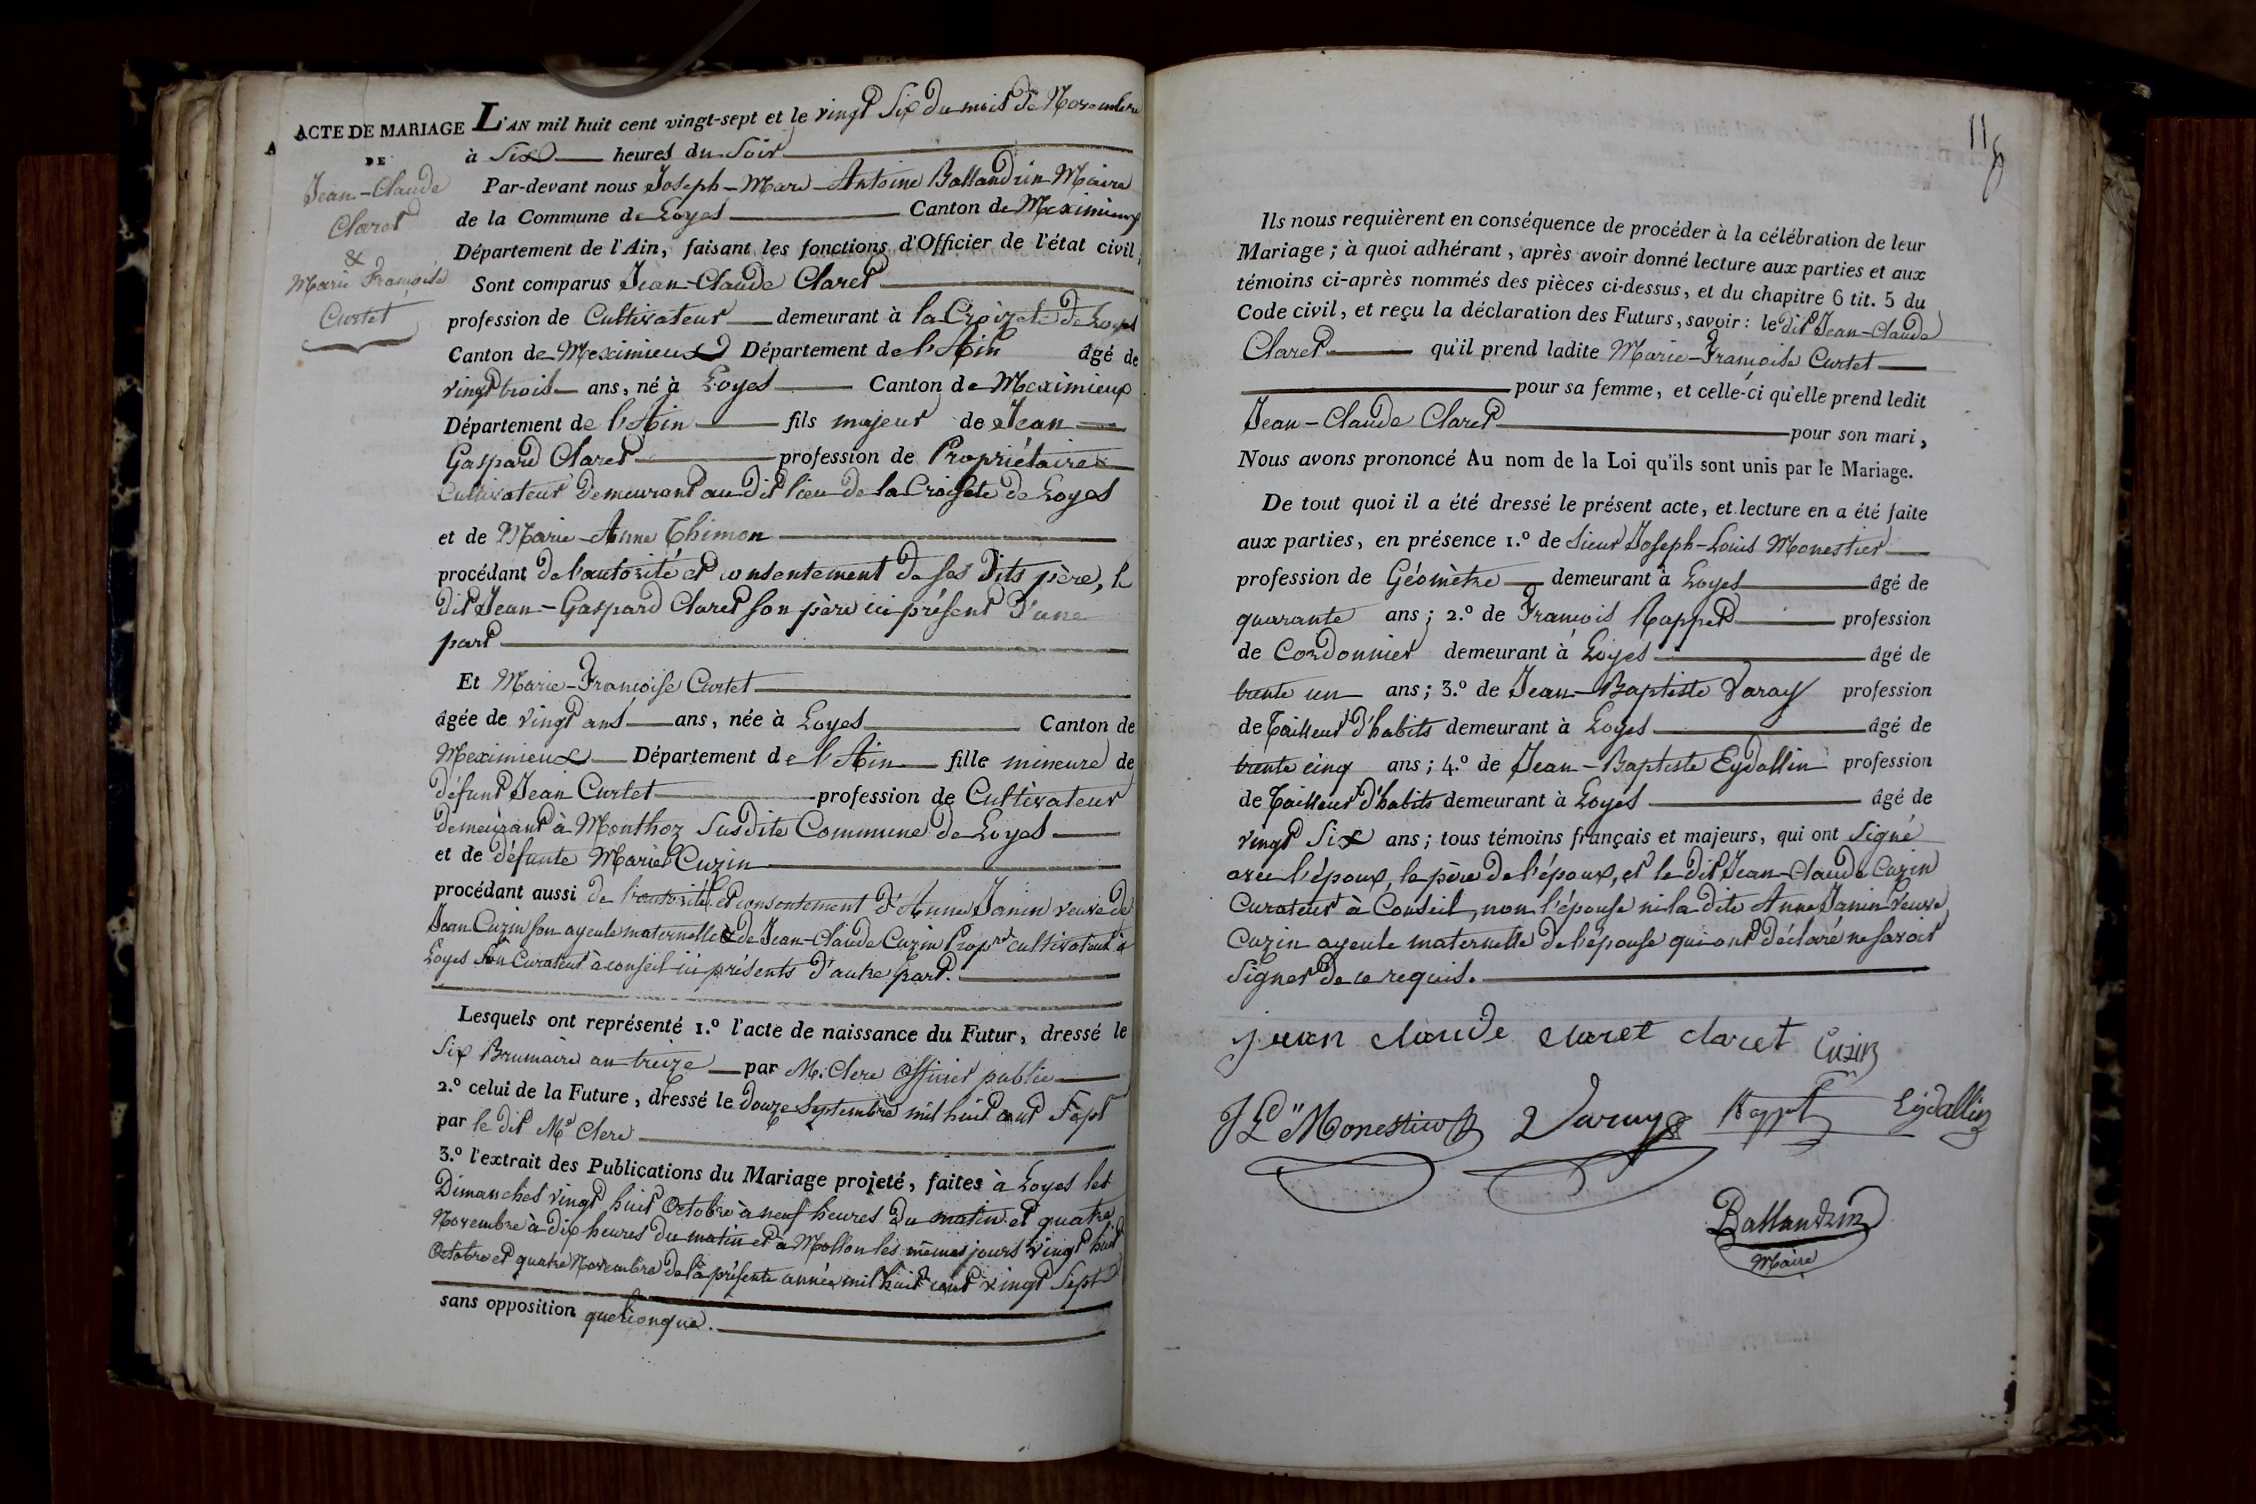 ACTE DE MARIAGE
DE
Jean-Claude
Claret
&
Marie Françoise
Curtet
L'AN mil huit cent vingt-sept et le vingt Six du mois de Novembre
à Six heures du Soir
Par-devant nous Joseph-Marie-Antoine Ballandrin Maire
de la Commune de Loyes Canton de Meximieux
Département de l'Ain, faisant les fonctions d'Officier de l'état civil,
Sont comparus Jean-Claude Claret
profession de Cultivateur demeurant à la Croizete de Loyes
Canton de Meximieux Département de l'Ain âgé de
vingt trois ans, né à Loyes Canton de Meximieux
Département de l'Ain fils majeur de Jean
Gaspard Claret profession de Propriétaire
Cultivateur demeurant au dit lieu de la Croisete de Loyes
et de Marie-Anne Thimon
procédant de l'autorité et consentement de ses dits père, le
dit Jean-Gaspard Claret son père ici présent d'une
part
Et Marie-Françoise Curtet
âgée de vingt ans ans, née à Loyes Canton de
Meximieux Département de l'Ain fille mineure de
défunt Jean Curtet profession de Cultivateur
demeurant à Monthoz susdite Commune de Loyes
et de défunte Marie Cuzin
procédant aussi de l'autorité et consentement d'Anne Janin veuve de
Jean Cuzin son ayeule maternelle & de Jean-Claude Cuzin Propre cultivateur à
Loyes Son Curateur à conseil ici présents d'autre part.
Lesquels ont représenté 1.º l'acte de naissance du Futur, dressé le
Six Brumaire an treize par M. Clerc Officier public
2.º celui de la Future, dressé le douze Septembre mil huit cent Sept
par le dit Mr Clerc
3.º l'extrait des Publications du Mariage projeté, faites à Loyes les
Dimanches vingt huit Octobre à neuf heures du matin et quatre
Novembre à dix heures du matin et à Mollon les mêmes jours vingt huit
Octobre et quatre Novembre de la présente année mil huit cent vingt Sept
sans opposition quelconque.
118
Ils nous requièrent en conséquence de procéder à la célébration de leur
Mariage ; à quoi adhérant, après avoir donné lecture aux parties et aux
témoins ci-après nommés des pièces ci-dessus, et du chapitre 6 tit. 5 du
Code civil, et reçu la déclaration des Futurs, savoir : le dit Jean-Claude
Claret qu'il prend ladite Marie-Françoise Curtet
pour sa femme, et celle-ci qu'elle prend ledit
Jean-Claude Claret pour son mari,
Nous avons prononcé Au nom de la Loi qu'ils sont unis par le Mariage.
De tout quoi il a été dressé le présent acte, et lecture en a été faite
aux parties, en présence 1.º de Sieur Joseph-Louis Monestier
profession de Géomètre demeurant à Loyes âgé de
quarante ans ; 2.º de François Rappet profession
de Cordonnier demeurant à Loyes âgé de
trente un ans ; 3.º de Jean-Baptiste Varay profession
de Tailleur d'habits demeurant à Loyes âgé de
trente cinq ans ; 4.º de Jean-Baptiste Eydallin profession
de Tailleur d'habits demeurant à Loyes âgé de
vingt Six ans ; tous témoins français et majeurs, qui ont Signé
avec l'époux, le père de l'époux, et le dit Jean-Claude Cuzin
Curateur à Conseil, non l'épouse ni la dite Anne Janin Veuve
Cuzin ayeule maternelle de l'épouse qui ont déclaré ne savoir
Signer de ce requis.
jean claude claret claret Cuzin
J Ls Monestier Varay Rappet Eydallin
Ballandrin
Maire